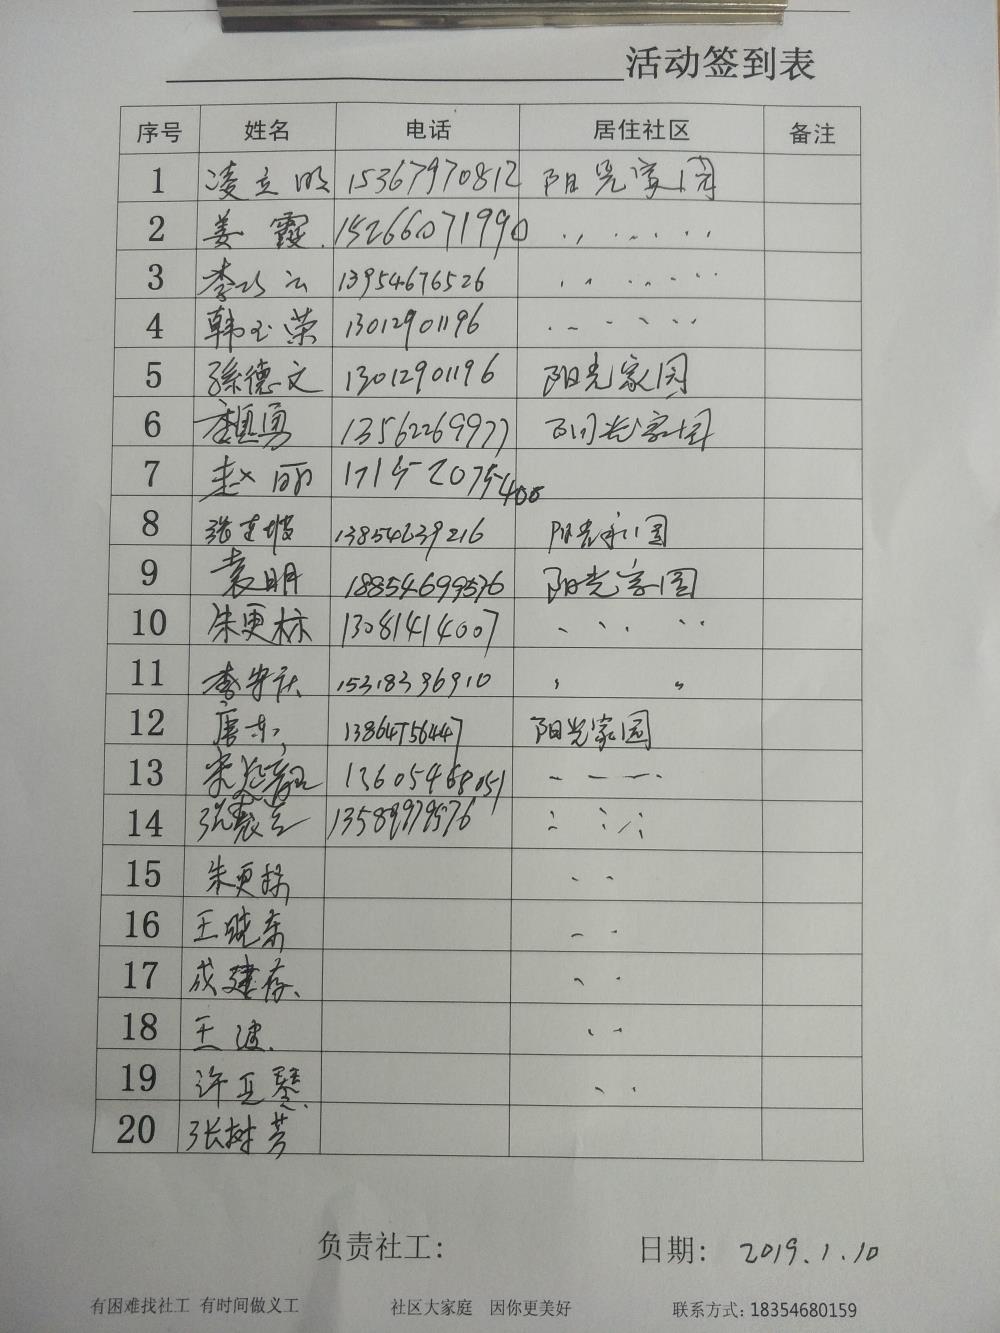 活动签到表
序号 姓名 电话 居住社区 备注
1 凌立明 15367970812 阳光家园
2 姜霞. 15266071990 〃 〃 〃
3 李巧云 13954676526 〃 〃 〃
4 韩玉荣 13012901196 〃 〃 〃
5 孫德文 13012901196 阳光家园
6 勇 13562269977 阳光家园
7 赵丽 1715-2075400
8 张 13854639216 阳光家园
9 袁明 18854699576 阳光家园
10 朱更林 13081414007 〃 〃 〃
11 李 15318396910 〃 〃
12 唐东 13864756447 阳光家园
13 宋 13605468051
14 张 13589979576
15 朱更林 〃
16 王晓东 〃
17 成建存、 〃
18 王波. 〃
19 许亚琴. 〃
20 张树芳
负责社工: 日期: 2019.1.10
有困难找社工 有时间做义工 社区大家庭 因你更美好 联系方式: 18354680159